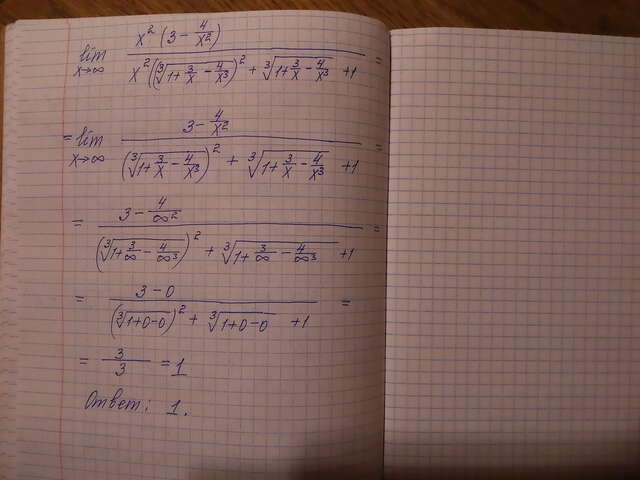 lim x→∞ x²(3 − 4/x²) / x²((∛(1+3/x − 4/x³))² + ∛(1+3/x − 4/x³) +1 =
= lim x→∞ (3 − 4/x²) / (∛(1+3/x − 4/x³))² + ∛(1+3/x − 4/x³) +1 =
= (3 − 4/∞²) / (∛(1+3/∞ − 4/∞³))² + ∛(1+3/∞ − 4/∞³) +1 =
= (3−0) / (∛(1+0−0))² + ∛(1+0−0) +1 =
= 3/3 = 1
Ответ: 1.